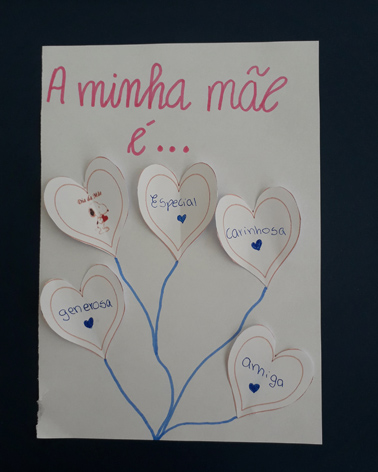 A minha mãe
é...
Especial
carinhosa
generosa
amiga